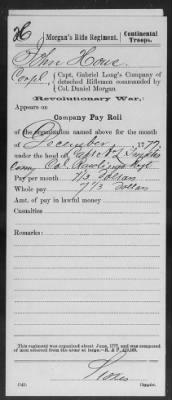 H
Morgan's Rifle Regiment.
Continental Troops.
John Hows
Corpl,
Capt. Gabriel Long's Company of
detached Riflemen commanded by
Col. Daniel Morgan
Revolutionary War,
Appears on
Company Pay Roll
of the organization named above for the month
of December, 1777,
under the head of
Comg Col. Rawlings Regt
Pay per month 7⅓ Dollars
Whole pay 7⅓ Dollars
Amt. of pay in lawful money
Casualties
Remarks:
This regiment was organized about June, 1777, and was composed
of men selected from the army at large.—R. & P.
Copyist.